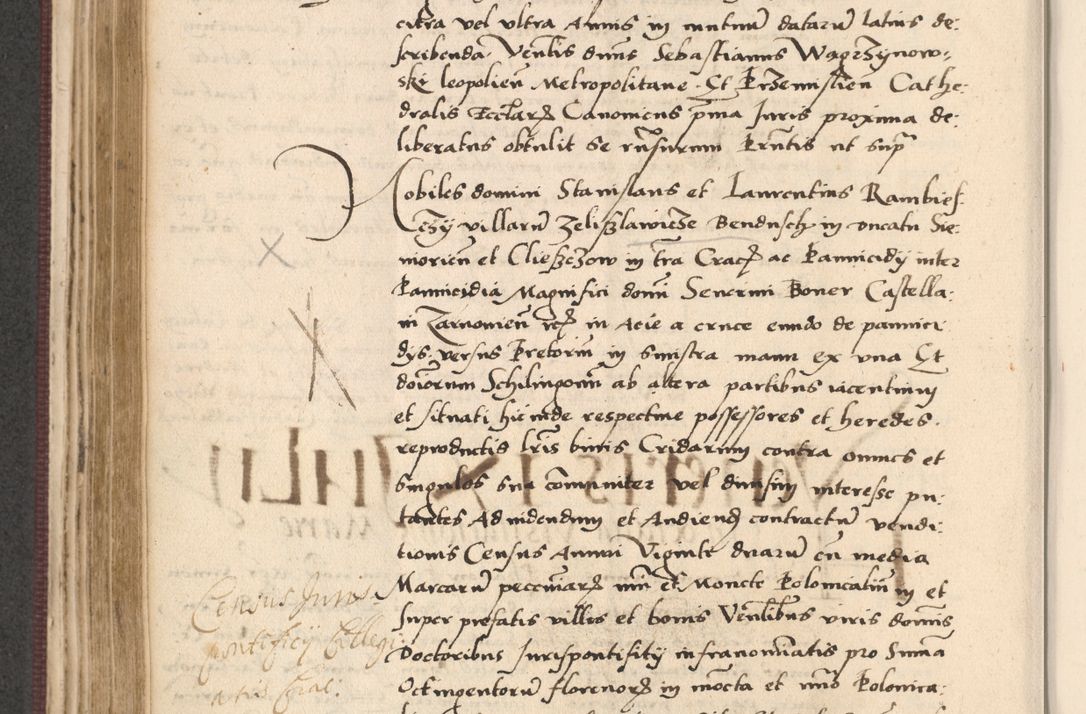 citra vel ultra Annis in mutuũ datarũ latius de:
scribenda Venĩlis dnns Sebastianus Wagrzÿnow:
ski leopolieñ Metropolitane Et Przemislieñ Cathe:
dralis Ecclarꝝ Canonicus pñia Iuris proxima de:
liberatus obtulit se rũsurum Prñtis ut sup̃
Nobiles domini Stanislaus et Laurentius Rambies:
Czesÿ villarũ Zelislawicze Bendusch in ducatu Sie:
morieñ et Clieszczow in tra Cracꝭ ac Pannicidÿ inter
Pannicidia Magnifici domĩ Senerini Boner Castella:
ni Zarnowieñ in Acie a cruce eundo de pannici
dÿs versus Pretoriũ in sinistra manu ex una Et
doĩorum Schilingoruĩ ab altera partibus iacentium
et situati hicinde respective possessores et heredes
reproductis lrĩs binis Cridarum contra omnes et
singulos sua cõmuniter vel divisim interesse pu:
tantes Ad videndum et Andiendꝭ contractũ vendi:
tionis Census Annui Viginti duarũ cũ media
Marcarũ pecuniarꝝ num et Monete Polonicaliũ in et
super prefatis villis et bonis Venĩlibus viris dominis
Doctoribus Iurispontificÿ infranoĩnatis pro Summa
Octingentorũ florenorꝝ in mõeta et nũo Polonica:
Census Juris
pontificÿ Collegi: